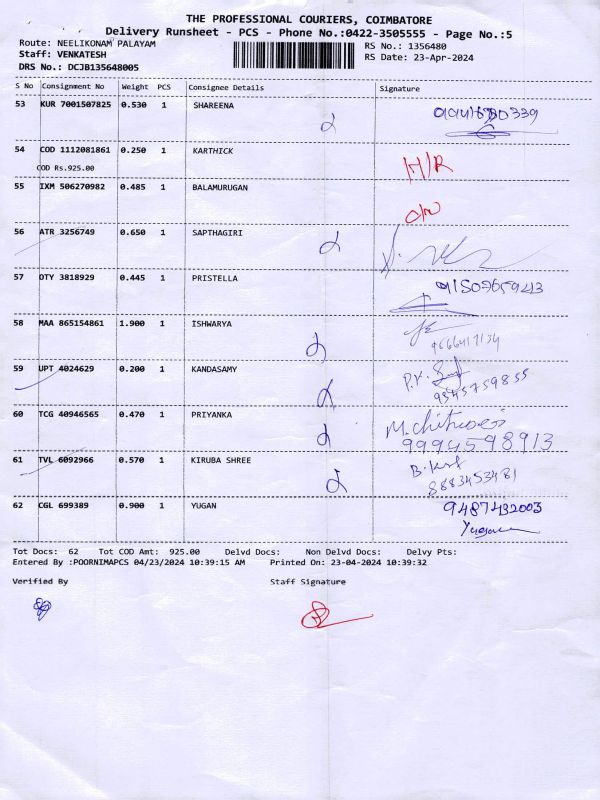 THE PROFESSIONAL COURIERS, COIMBATORE
Delivery Runsheet - PCS - Phone No.:0422-3505555 - Page No.:5
Route: NEELIKONAM PALAYAM
RS No.: 1356480
Staff: VENKATESH
RS Date: 23-Apr-2024
DRS No.: DCJB135648005
S No Consignment No Weight PCS Consignee Details Signature
53 KUR 7001507825 0.530 1 SHAREENA
54 COD 1112081861 0.250 1 KARTHICK H/R
COD Rs.925.00
55 IXM 506270982 0.485 1 BALAMURUGAN
56 ATR 3256749 0.650 1 SAPTHAGIRI
57 DTY 3818929 0.445 1 PRISTELLA
58 MAA 865154861 1.900 1 ISHWARYA
59 UPT 4024629 0.200 1 KANDASAMY
60 TCG 40946565 0.470 1 PRIYANKA
9994598913
61 TVL 6092966 0.570 1 KIRUBA SHREE
8883453481
62 CGL 699389 0.900 1 YUGAN 9487432003
Tot Docs: 62 Tot COD Amt: 925.00 Delvd Docs: Non Delvd Docs: Delvy Pts:
Entered By :POORNIMAPCS 04/23/2024 10:39:15 AM Printed On: 23-04-2024 10:39:32
Verified By Staff Signature